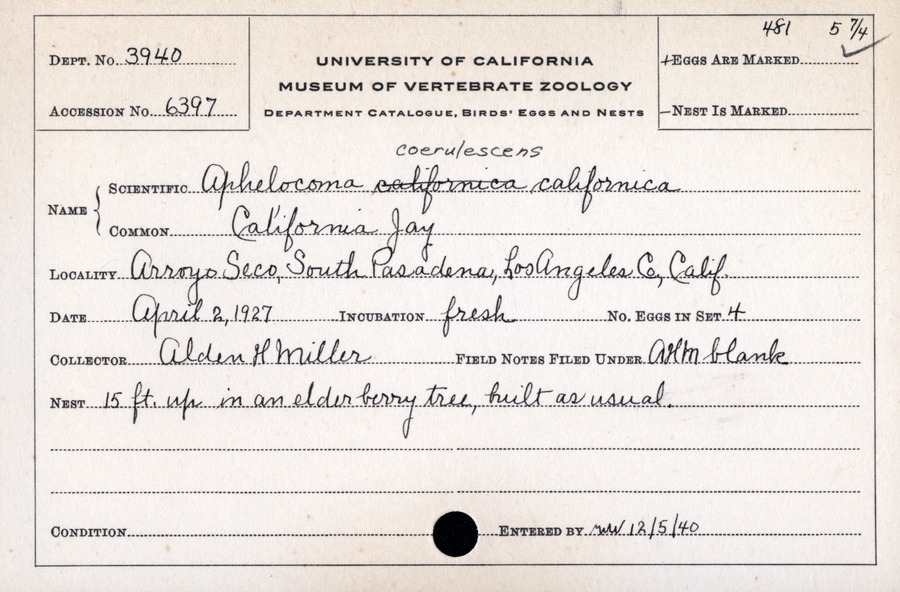 481 5 7/4
Dept. No. 3940
UNIVERSITY OF CALIFORNIA
+Eggs Are Marked
MUSEUM OF VERTEBRATE ZOOLOGY
Accession No. 6397
Department Catalogue, Birds' Eggs and Nests
–Nest Is Marked
coerulescens
Name
Scientific Aphelocoma californica californica
Common California Jay
Locality Arroyo Seco, South Pasadena, Los Angeles Co, Calif.
Date April 2, 1927 Incubation fresh No. Eggs in Set 4
Collector Alden H Miller Field Notes Filed Under AHM blank
Nest 15 ft. up in an elderberry tree, built as usual.
Condition Entered by 12/5/40